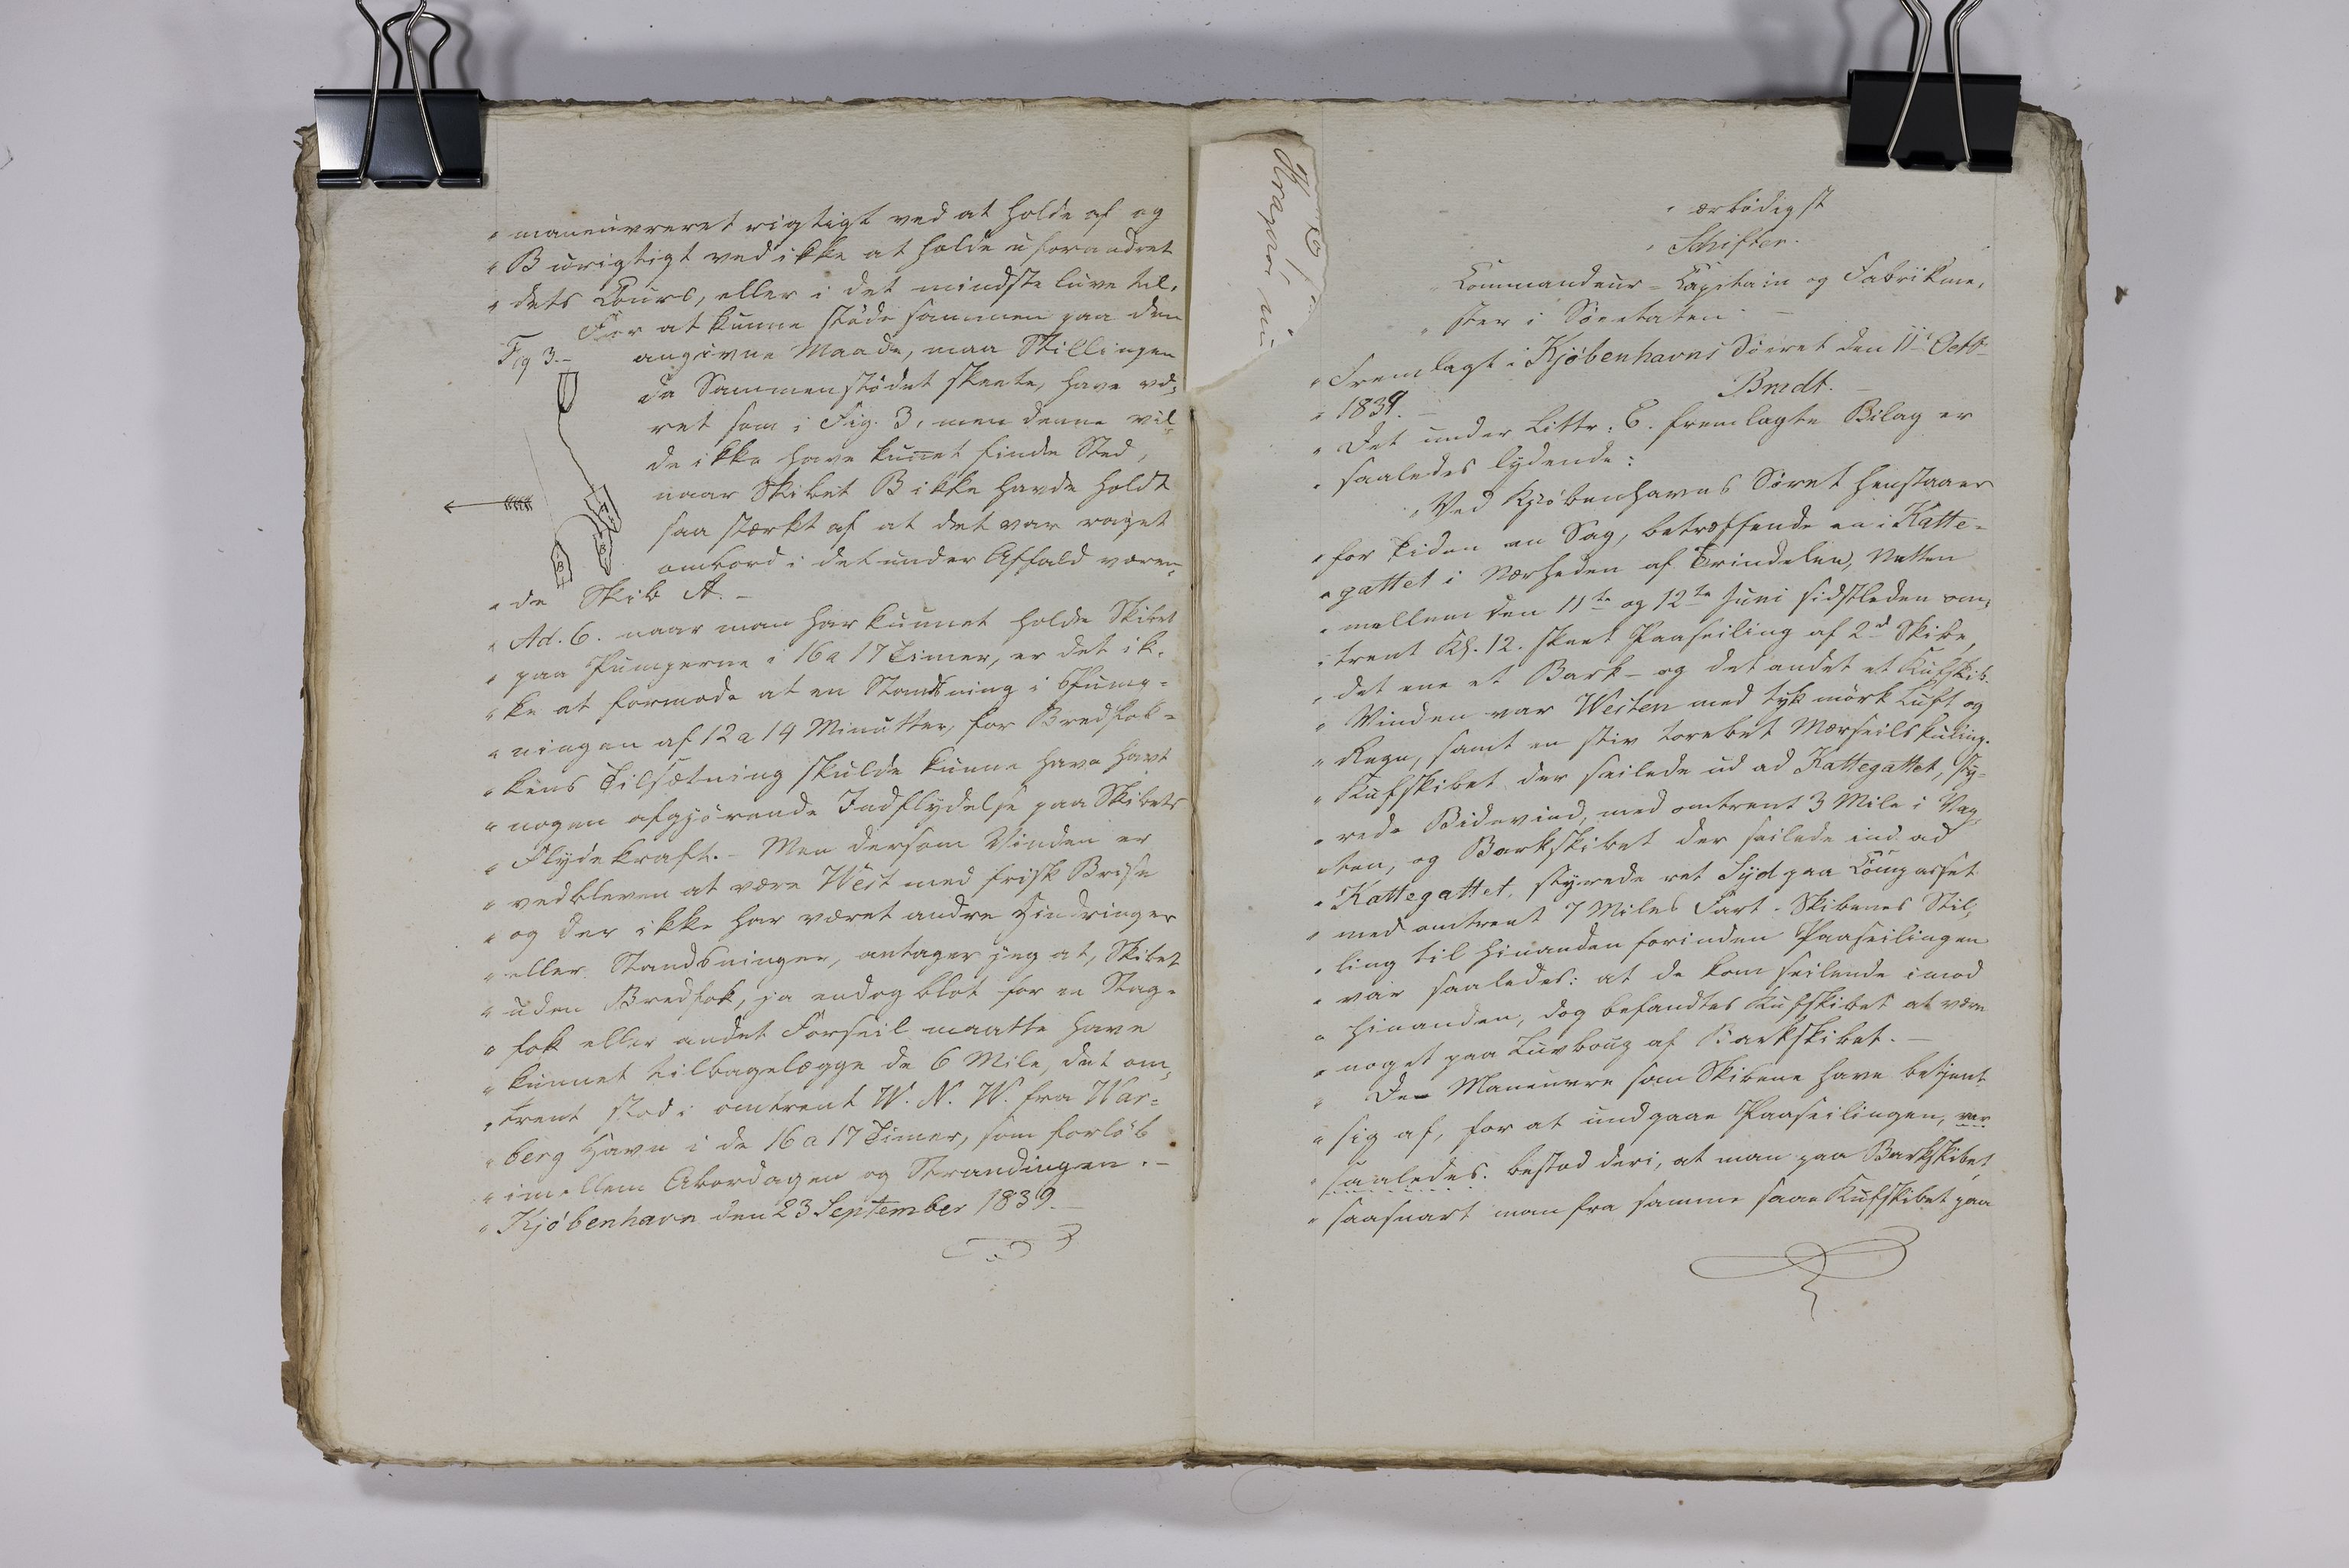 " maneuvreret rigtigt ved at holde af og
" B urigtigt ved ikke at holde uforandret
" dets Cours, eller i det mindste luve til.
For at kunne støde sammen paa den
Fig 3.- angivne Maade, maa Stillingen
da Sammenstødet skeete, have væ-
ret som i Fig. 3, men denne vil-
de ikke have kunnet finde Sted,
naar Skibet B ikke havde holdt
saa stærkt af at det var raget
ombord i det under Affald væren-
" de Skib A. -
" Ad. 6. naar man har kunnet holde Skibet
" paa Pumperne i 16 a 17 Timer, er det ik-
" ke at formode at en Standsning i Pump-
" ningen af 12 a 14 Minutter, for Bredfok-
" kens Tilsætning skulde kunne have havt
" nogen afgjørende Indflydelse paa Skibets
" Flydekraft. - Men dersom Vinden er
" vedbleven at være West med frisk Brise
" og der ikke har været andre Hindringer
" eller Standsninger, antager jeg at, Skibet
" uden Bredfok, ja endog blot for en Stag-
" fok eller andet Forseil maatte have
" kunnet tilbagelægge de 6 Mile, det om-
" trent stod i omtrent W. N. W. fra War-
" berg Havn i de 16 a 17 Timer, som forløb
" imellem Abordagen og Strandingen. -
" Kjøbenhavn den 23 September 1839. -
" ærbødigst
" Schifter.
" Commandeur-Capitain og Fabrikme-
" ster i Søeetaten. -
" Fremlagt i Kjøbenhavns Søeret den 11te Octb
" 1839. - Bredt. -
" Det under Littr: C. fremlagte Bilag er
" saaledes lydende:
" Ved Kjøbenhavns Søret henstaaer
" for Tiden en Sag, betræffende en i Katte-
" gattet i Nærheden af Trindelen, Natten
" mellem den 11te og 12te Juni sidstleden om-
" trent Kl. 12. skeet Paaseiling af 2de Skibe,
" det ene et Bark- og det andet et Kufskib.
" Vinden var Westen med tyk mørk Luft og
" Regn, samt en stiv torebet Mærseilskuling.
" Kufskibet der seilede ud ad Kattegattet, sty-
" rede Bidevind, med omtrent 3 Mile i Vag-
" ten, og Barkskibet der seilede ind ad
" Kattegattet, styrede ret Syd paa Compasset
" med omtrent 7 Miles Fart. Skibenes Stil-
" ling til hinanden forinden Paaseilingen
" var saaledes: at de kom seilende imod
" hinanden, dog befandtes Kufskibet at være
" noget paa Luvboug af Barkskibet. -
" Den Maneuvre som Skibene have betjent
" sig af, for at undgaae Paaseilingen, var
" saaledes. bestod deri, at man paa Barkskibet,
" saasnart man fra samme saae Kufskibet paa